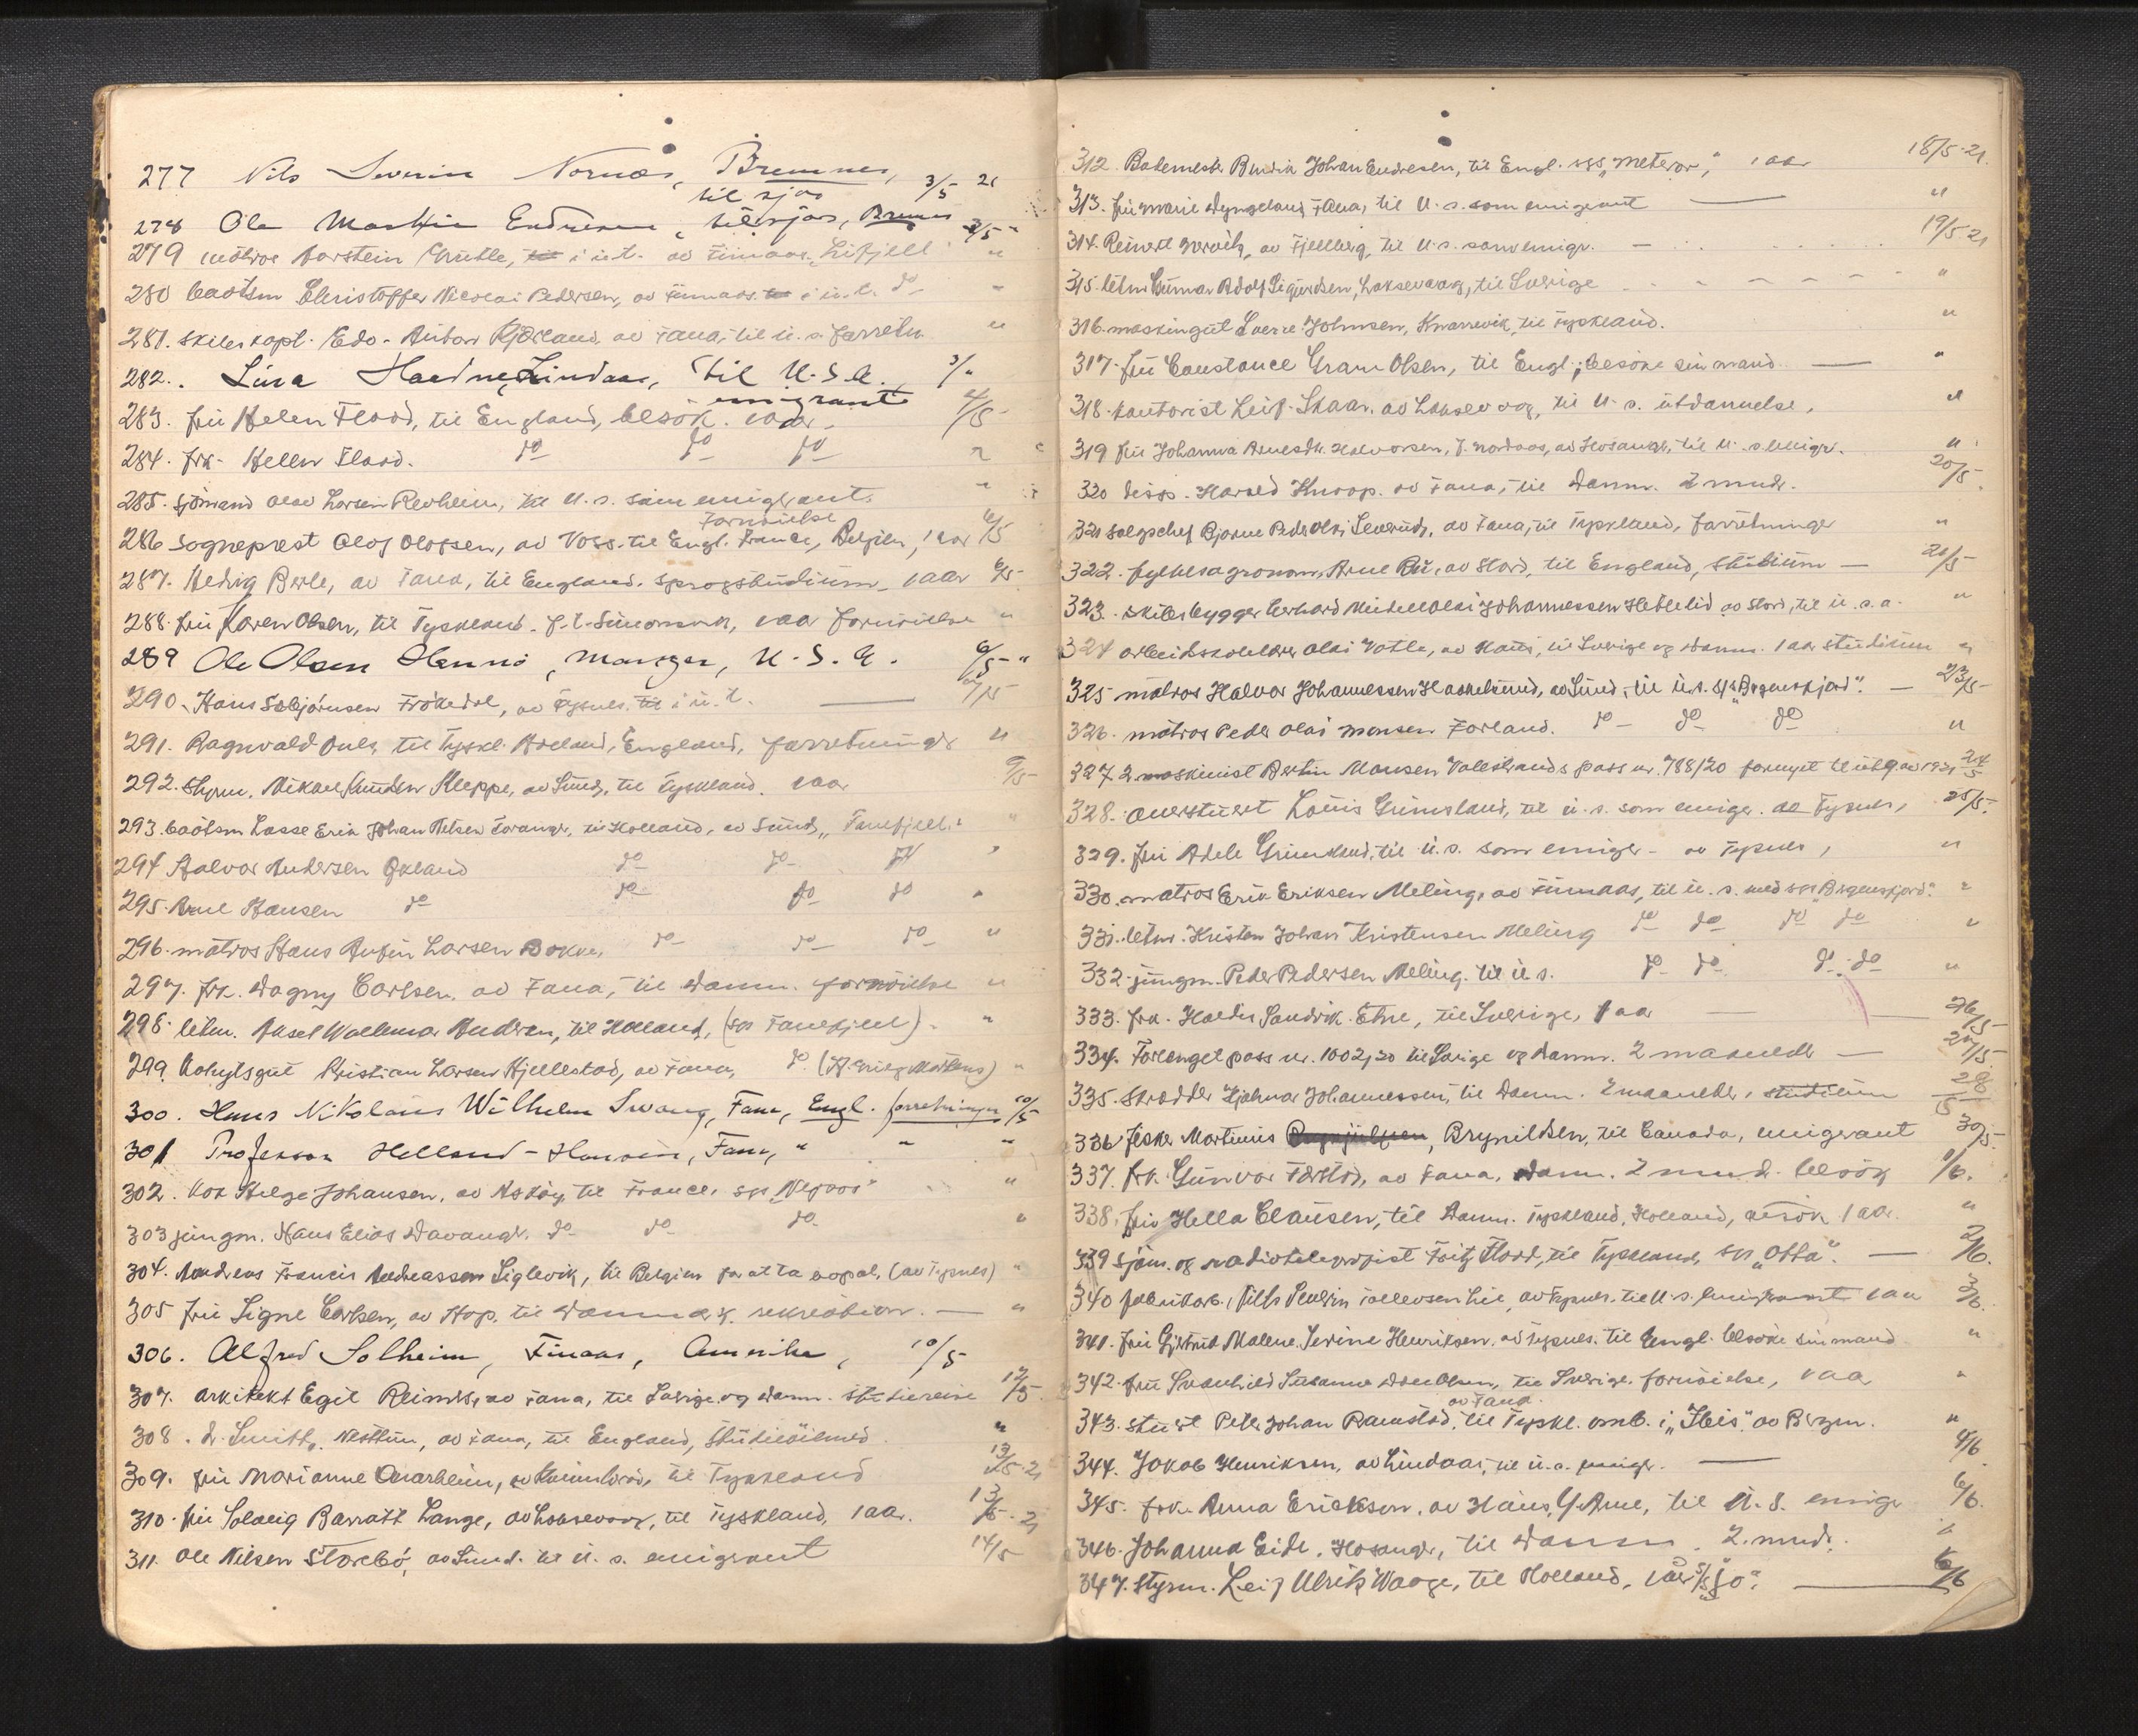 277 Nils Severin Nornes, Bremnes, 3/5 21
til sjøs
278 Ole Martin Endresen, til sjøs, Bremnes 3/5 "
279 matros Torstein Grutle, i u.t. av Finnaas "Lifjell" "
280 baatsm Christoffer Nicolai Pedersen, av Finnaas i u.t. do "
281. skibskapt. Edv. Anton Kjørland, av Fana, til u.s. forretn. "
282. Lina Hordnes, Lindaas, til U.S.A. 3/"
emigrant
283. fru Helen Flood, til England, besøk. 1 aar 4/5
284. frk. Hellen Flood. do do do "
285. sjömand Olav Larsen Revheim, til U.s. som emigrant. "
fornöielse
286 sogneprest Olof Olofsen, av Voss. til Engl. France, Belgien, 1 aar 6/5
287. Hedvig Berle, av Fana, til England. sprogstudium, 1 aar 6/5
288. fru Karen Olsen, til Tyskland. 1 aar fornöielse "
289 Ole Olsen Hennö, Manger, U.S.A. 6/5 "
290. Hans Sebjörnsen Frökedal, av Fysnes. i u.t. /5
291. Ragnvald Juhl, til Tyskl. Holland, England, forretninger "
292. Styrm. Mikael Knudsen Kleppe, av Sund, til Tyskland. 1 aar 9/5
293. baatsm Lasse Erik Johan Nelsen Toranger, til Holland, av Sund, "Fanefjell" "
294 Halvor Andersen Økland do do do "
295. Arne Hansen do do do do "
296. matros Hans Anfin Larsen Bakke, do do do "
297. frk. Dagny Carlsen, av Fana, til Danm. fornöielse "
298. letm. Aksel Waldemar Andersen, til Holland, (ss Fanefjell). "
299. kahytsgut Kristian Larsen Hjellestad, av Fana, do. (ss Grieg Martens) "
300. Hans Nikolaus Wilhelm Swang, Fana, Engl. forretninger 10/5
301 Professor Helland-Hansen, Fana, " " "
302. kok Helge Johansen, av Askøy til France, ss "Nepos" "
303 jungm. Hans Elias Davanger. do do do "
304. Andreas Francis Andreassen Liglevik, til Belgien for at ta hopal. (av Fysnes) "
305 fru Signe Carlsen, av Hop. til Danmark. rekreation. "
306. Alfred Solheim, Finaas, Amerika, 10/5
307. arkitekt Egil Reimers, av Fana, til Sverige og Danm. studiereise 12/5
308. d. Smitt, Nesttun, av Fana, til England, studieöiemed "
309. fru Marianne Kvarheim, av Kvinnherad, til Tyskland 13/5. 21
310. fru Solveig Barratt Lange, av Laksevaag, til Tyskland, 1 aar. 13/5. 21
311. Ole Nilsen Storebö, av Sund. til U.s. emigrant 14/5
312. Bademester Budvin Johan Endresen, til Engl. sgs "Meteor", 1 aar 18/5. 21.
313. fru Marie Dyngeland, Fana, til U.s. som emigrant "
314. Reinert Gervik, av Fjellberg, til U.s. som emigr. 19/5 21
315. letm Gunnar Adolf Sigurdsen, Laksevaag, til Sverige "
316. maskingut Sverre Johnsen, Knarrevik, til Tyskland. "
317. fru Constance Gram Olsen, til Engl., besöke sin mand "
318. kontorist Leif Skaar. av Laksevaag, til U.s. utdannelse, "
319 fru Johanna Arnesdtr. Halvorsen, f. Nordaas, av Hosanger, til U.s. emigr. "
320 disp. Harald Knoop. av Fana, til Danm. 2 mndr. 20/5.
321 salgschef Bjarne Peder Olai Severud, av Fana, til Tyskland, forretninger "
322. fylkesagronom Arne Bu, av Stord, til England, studium 20/5
323. skibsbygger Gerhard Mikal Olai Johannessen Hetlelid av Stord, til u.s.a. "
324 arbeidsskolelærer Olai Vatle, av Haus, til Sverige og Danm. 1 aar studium "
325 matros Halvor Johannessen Haakelsund, av Sund, til U.s. S/s "Bergensfjord". 23/5
326. matros Peder Olai Monsen Forland. do do do "
327 2. maskinist Bertin Monsen Valestrands pass nr. 788/20 fornyet til utg. av 1921 24/5
328. overstuert Louis Grimsland, til U.s. som emigr. av Fysnes, 25/5.
329. fru Adele Grimsland, til U.s. som emigr. av Fysnes, "
330. matros Erik Eriksen Meling, av Finnaas, til U.s. med sgs "Bergensfjord." "
331. letm. Kristen Johan Kristensen Meling do do do do "
332. jungm. Peder Pedersen Meling. til U.s. do do do do "
333. frk. Haldis Sandvik. Etne, til Sverige, 1 aar 26/5
334. Forlenget pass nr. 1002/20 til Sverige og Danm. 2 maaneder 27/5
335. Skrædder Hjalmar Johannessen, til Danm. 2 maaneder, studium 28/5
336 fisker Martinius Brynildsen, til Canada, emigrant 30/5.
337. frk. Gunvor Færstad, av Fana, Danm. 2 mnd. besök 1/6.
338. fru Hella Clausen, til Danm. Tyskland, Holland, besök 1 aar. "
339 sjöm. og radiotelegrafist Fritz Flood, til Tyskland, sgs "Otta". 2/6.
340 fabrikarb. Nils Severin Tollevsen Lie, av Fysnes. til U.s. emigrant 1 aar 3/6.
341. fru Gjertrud Malene Severine Henriksen, av Fysnes. til Engl. besöke sin mand "
342. fru Svanhild Susanne Olsen, til Sverige. fornöielse, 1 aar "
av Fana.
343. stuert Peter Johan Ramstad, til Tyskl. omb. i "Ibis" av Bergen. "
344. Jakob Henriksen, av Lindaas, til U.s. emigr. 4/6
345. frk. Anna Erickson, av Haus, Y. Arne, til U.S. emigr 6/6.
346. Johanna Eide, Hosanger, til Danm. 2. mnd. "
347. styrm. Leif Ulrik Waage, til Holland, 1 aar S/s "Jo". 6/6